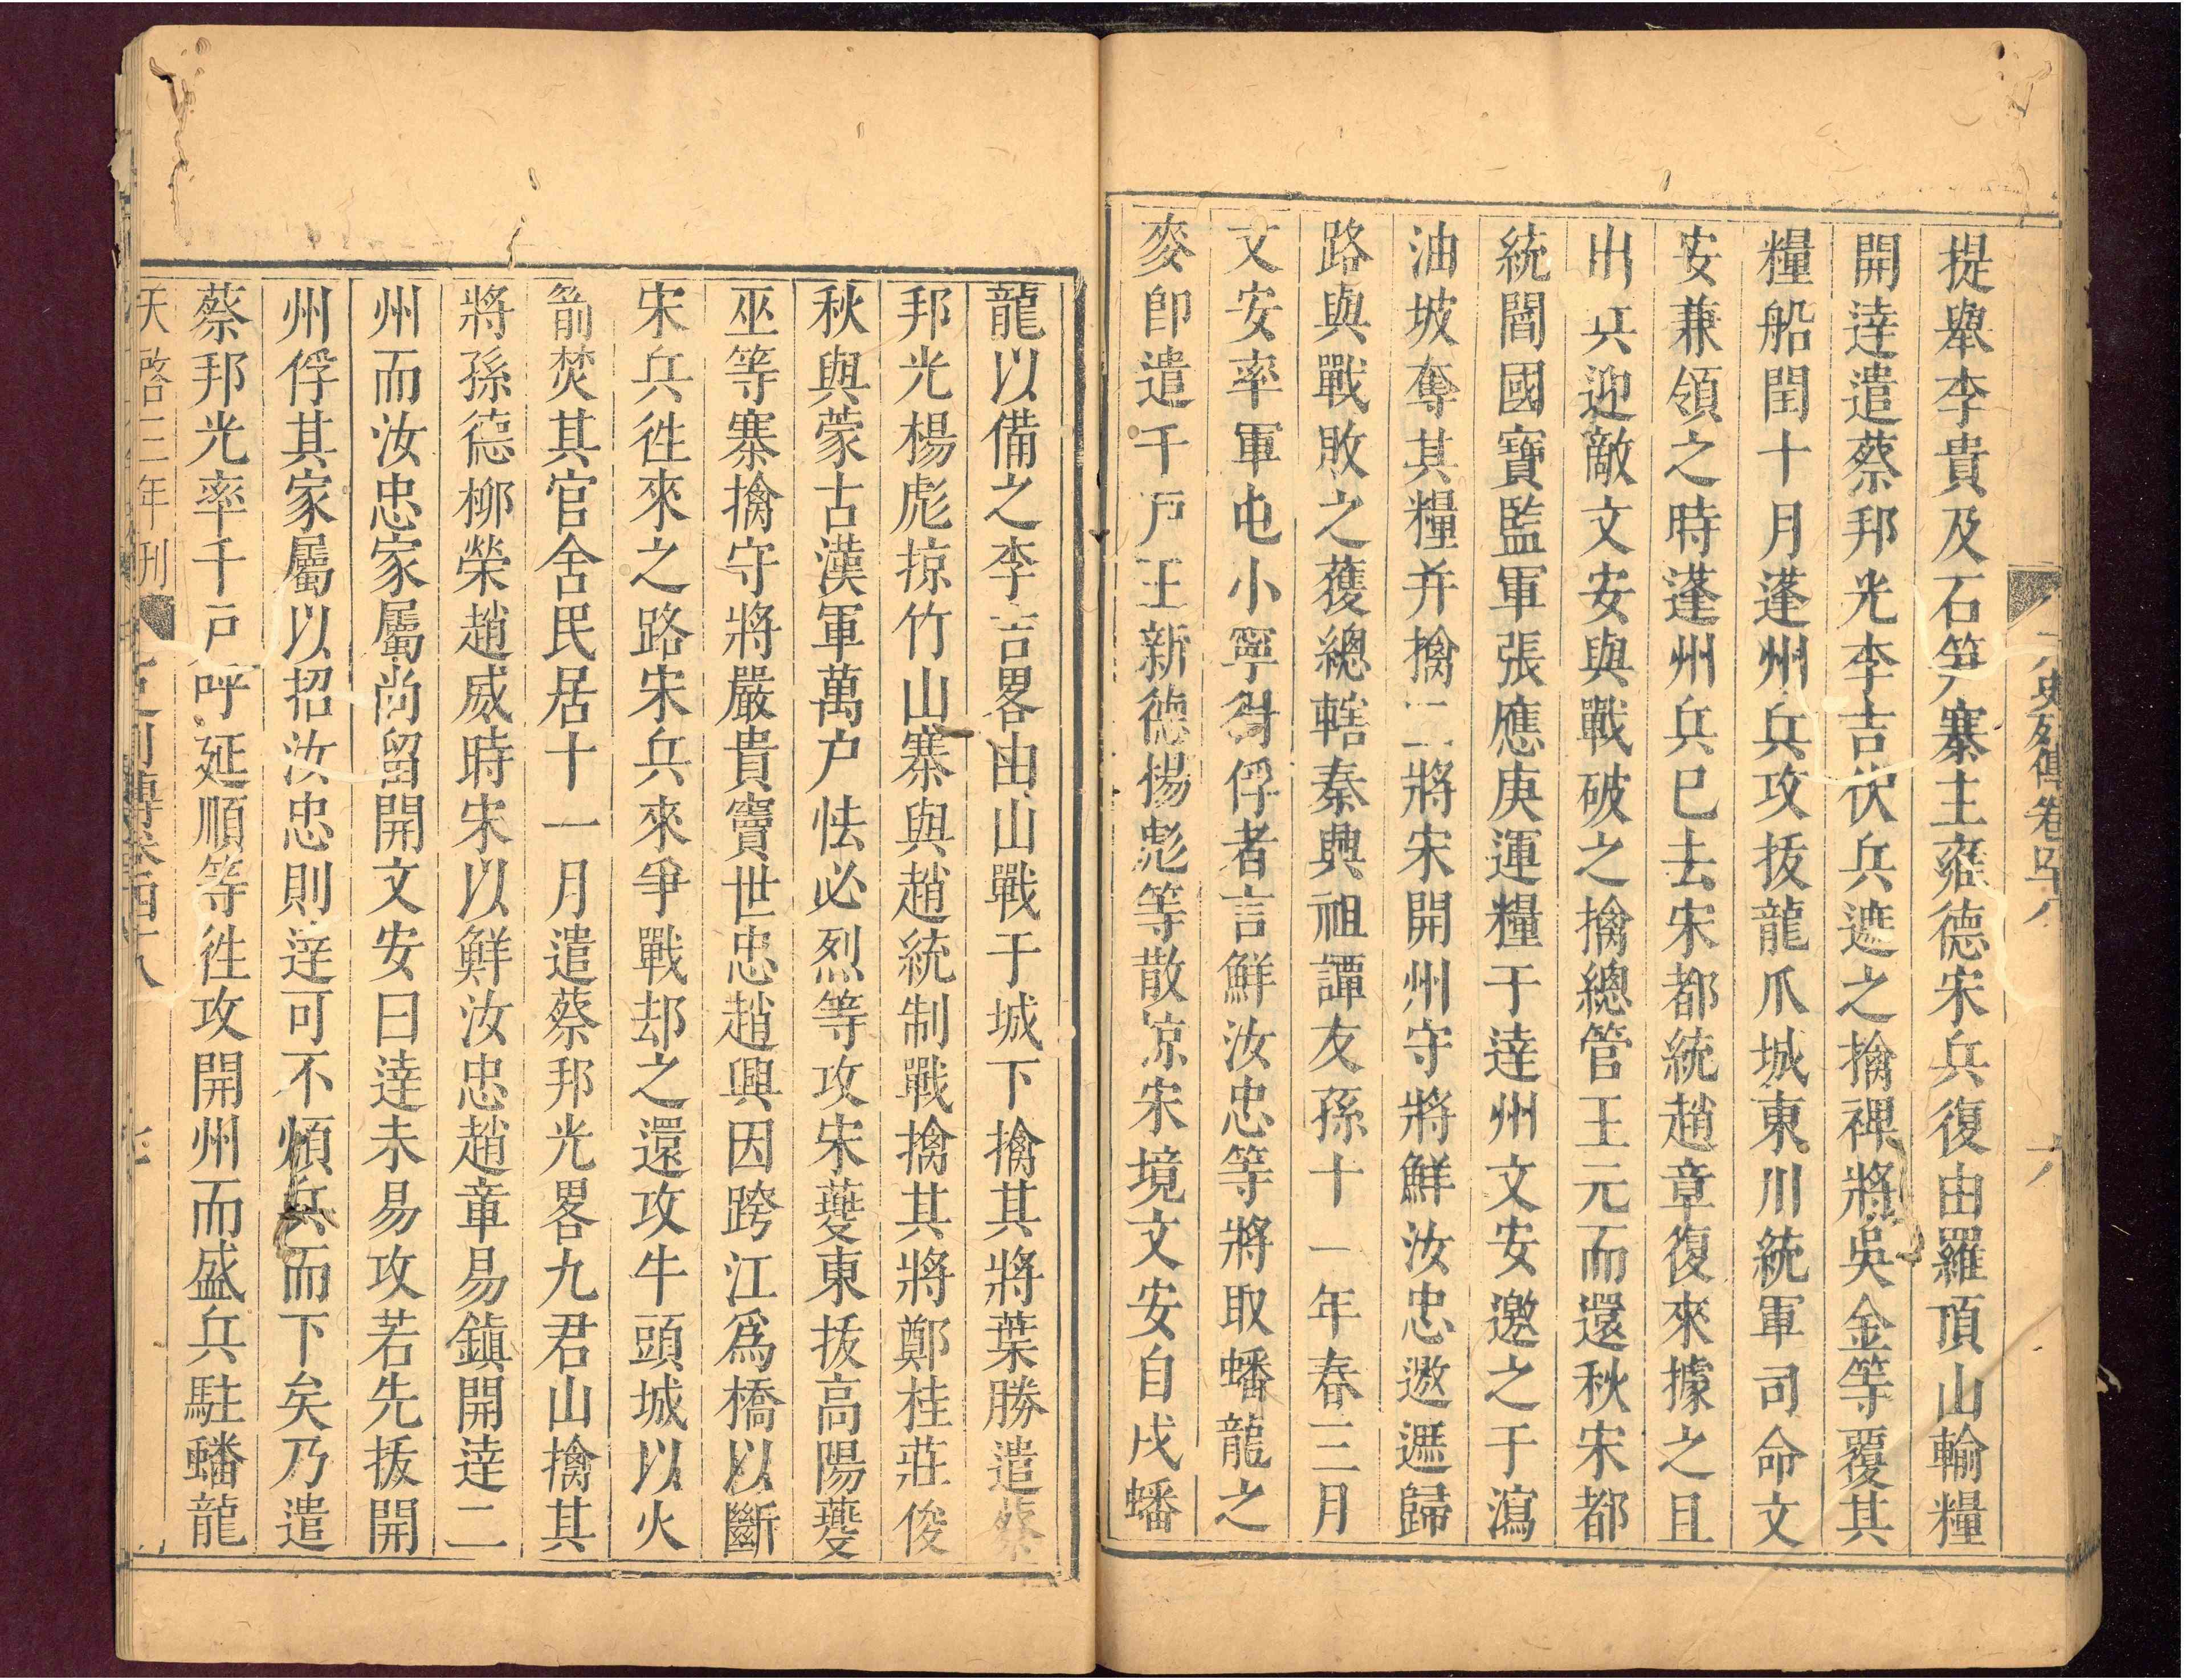 提舉李貴及石笋寨主雍德宋兵復由羅頂山輸糧
開逹遣蔡邦光李吉伏兵遮之擒裨將吳金等覆其
糧船閏十月蓬州兵攻拔龍爪城東川統軍司命文
安兼領之時蓬州兵巳去宋都統趙章復來據之且
出兵迎敵文安與戰破之擒總管王元而還秋宋都
統閻國寶監軍張應庚運糧于逹州文安邀之于瀉
油坡奪其糧并擒二將宋開州守將鮮汝忠邀遮歸
路與戰敗之獲總轄秦興祖譚友孫十一年春三月
文安率軍屯小寧得俘者言鮮汝忠等將取蟠龍之
麥卽遣千戶王新德楊彪等散掠宋境文安自戍蟠
龍以備之李吉畧由山戰于城下擒其將葉勝遣蔡
邦光楊彪掠竹山寨與趙統制戰擒其將鄭桂莊俊
秋與蒙古漢軍萬户怯必烈等攻宋䕫東拔高陽䕫
巫等寨擒守將嚴貴竇世忠趙興因跨江爲橋以斷
宋兵徃來之路宋兵來爭戰却之還攻牛頭城以火
箭焚其官舍民居十一月遣蔡邦光畧九君山擒其
將孫德柳榮趙威時宋以鮮汝忠趙章易鎭開逹二
州而汝忠家屬尚留開文安曰逹未易攻若先拔開
州俘其家屬以招汝忠則逹可不煩兵而下矣乃遣
蔡邦光率千戸呼延順等徃攻開州而盛兵駐蟠龍
天啓三年刊